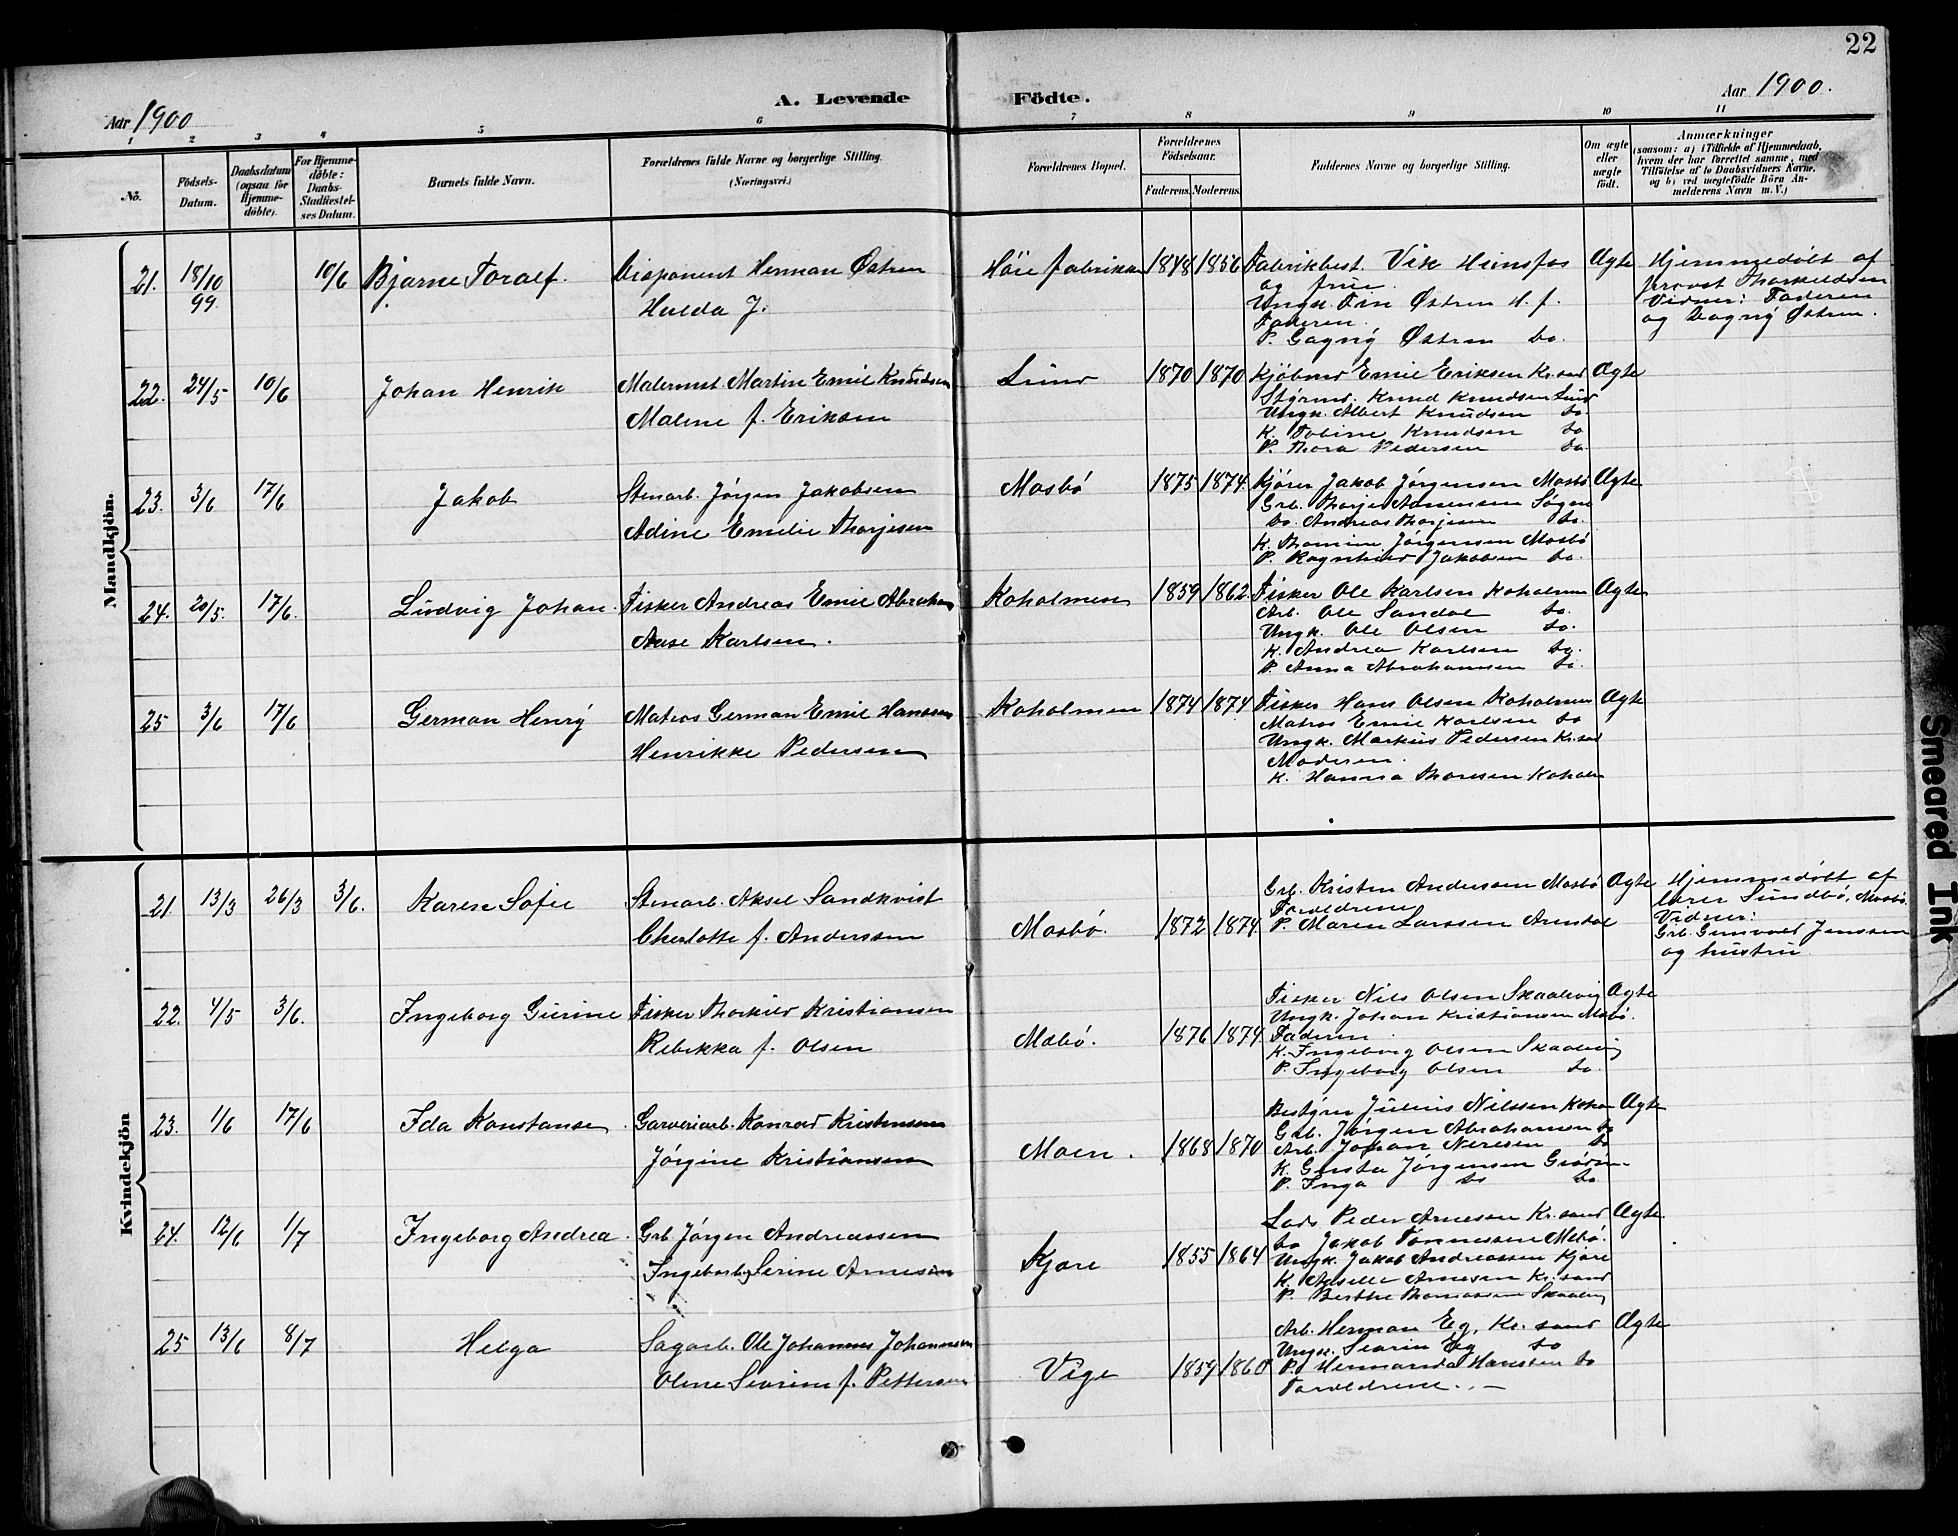 22
Aar 1900
A. Levende Födte.
Aar 1900.
1 2 3 4 5 6 7 8 9 10 11
No.
Födsels-Datum.
Daabsdatum (ogsaa for Hjemme-döbte).
For Hjemme-döbte: Daabs-Stadfæstel-ses Datum.
Barnets fulde Navn.
Forældrenes fulde Navne og borgerlige Stilling. (Næringsvei.)
Forældrenes Bopæl.
Forældrenes Födselsaar.
Faderens. Moderens.
Faddernes Navne og borgerlige Stilling.
Om ægte eller uægte født.
Anmærkninger
(saasom: a) i Tilfælde af Hjemmedaab,
hvem der har forrettet samme, med
Tilføielse af to Daabsvidners Navne.
og b) ved uægtefödte Börn An-
melderens Navn m. V.)
Mandkjön.
21. 18/10 99. 10/6 Bjarne Toralf. Disponent Herman Østren
Hulda J.
Høie fabrikker 1848 1856 Fabrikbest. Vik Hunsfos Ægte
og frue.
Ungk. Finn Østren H. f.
Faderen.
P. Dagny Østren do.
Hjemmedøbt af
provst Thorkildsen
Vidner: Faderen
og Dagny Østren.
22. 24/5 10/6 Johan Henrik Malermst Martin Emil Knudsen
Malene f. Eriksen
Lund 1870 1870 Kjøbmd Emil Eriksen Kr.sand Ægte
Styrm. Knud Knudsen Lund
Ungk. Albert Knudsen do.
K. Tobine Knudsen do.
P. Thora Pedersen do.
23. 3/6 17/6 Jakob Stenarb. Jørgen Jakobsen
Adine Emilie Thorjesen
Mosbø 1875 1874. Kjører Jakob Jørgensen Mosbø Ægte
Grb. Thorje Aanensen Søgne
do. Andreas Thorjesen do.
K. Thomine Jørgensen Mosbø
P. Ragnhild Jakobsen do.
24. 20/5. 17/6. Ludvig Johan. Fisker Andreas Emil Abraham
Aase Karlsen.
Koholmen 1859 1862. Fisker Ole Karlsen Koholmen Ægte
Arb. Ole Sandal do.
Ungk. Ole Olsen do.
K. Andrea Karlsen do.
P. Anna Abrahamsen do.
25 3/6 17/6 German Henry Matros German Emil Hanssen
Henrikke Pedersen
Koholmen 1874 1874 Fisker Hans Olsen Koholmen Ægte
Matros Emil Karlsen do
Ungk. Markus Pedersen Kr.sand
Moderen.
K. Hanna Thoresen Koholm
Kvindekjön
21. 13/3 26/3 3/6. Karen Sofie Stenarb. Aksel Sandkvist
Charlotte f. Anderssen
Mosbø. 1872 1874. Grb. Kristen Anderssen Mosbø Ægte
Forældrene
P. Maren Larssen Arendal
Hjemmedøbt af
lærer Sundbø, Mosbø.
Vidner:
Grb. Gunvald Jenssen
og hustru.
22. 4/5 3/6. Ingeborg Gurine Fisker Thorkild Kristiansen
Rebekka f. Olsen
Mæbø. 1876 1874. Fisker Nils Olsen Skaalevig Ægte
Ungk. Johan Kristiansen Mæbø.
Faderen
K. Ingeborg Olsen Skaalevig
P. Ingeborg Olsen do.
23. 1/6 17/6 Ida Konstanse. Garveriarb. Konrad Kristensen
Jørgine Kristiansen
Moen. 1868 1870 Bestyrer Julius Nilssen Ægte
Grb. Jørgen Abrahamsen do
Arb. Johan do
K. Gusta Jørgensen
P. Inga do do.
24. 12/6 1/7 Ingeborg Andrea. Grb Jørgen Andreassen
Ingeborg Serine Arnesen
Kjøre 1855 1864 Lods Peder Arnesen Kr.sand Ægte.
do Jakob Tønnessen Mæbø.
Ungk. Jakob Andreassen Kjøre
K. Arnesen Kr.sand
P. Berthe Thomassen Skaalevig
25 13/6 8/7 Helga Sagarb. Ole Johannes Johannessen
Oline Severine f. Pettersen
Vige 1859 1860 Arb. Herman Eg. Kr.sand Ægte
Ungk. Severin Eg do
P. Hermanda Hansten do
Forældrene.
Smeared Ink